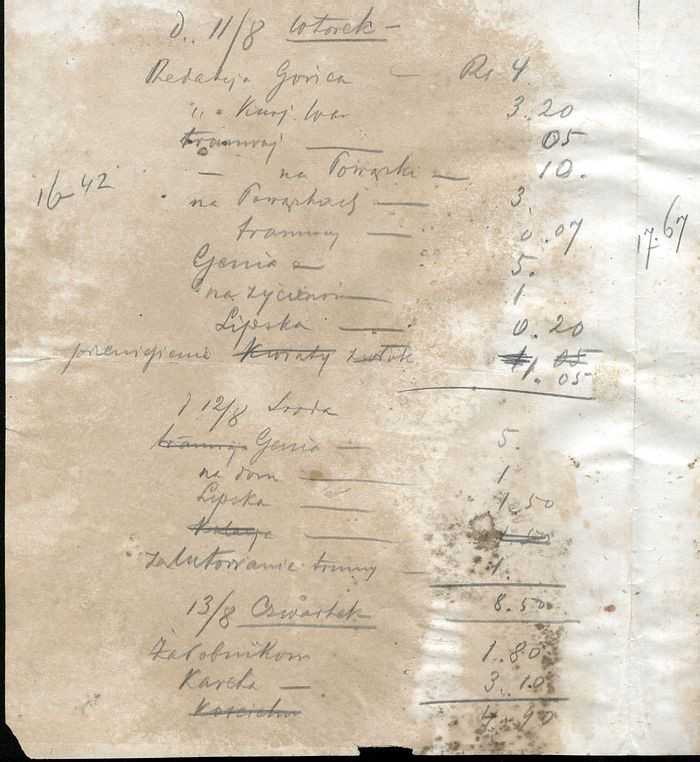 D. 11/8 Wtorek -
Redakcja Gońca — Rs 4
" Kurj. War 3.20
tramwaj — 05
- na Powązki — 10.
16-42
na Powązkach — 3.
tramwaj — 0.07
17.67
Genia — 5.
na życie — 1
Lipska — 0.20
przeniesienie Kwiaty zwłok 1. 05
1. 05
D 12/8 Środa
tramwaj Genia — 5.
na dom — 1
Lipska — 1.50
Kolacje — 1.60
Zalutowanie trumny — 1.
8.50
13/8 Czwartek
Żałobnikom 1.80
Kareta — 3.10
4.90